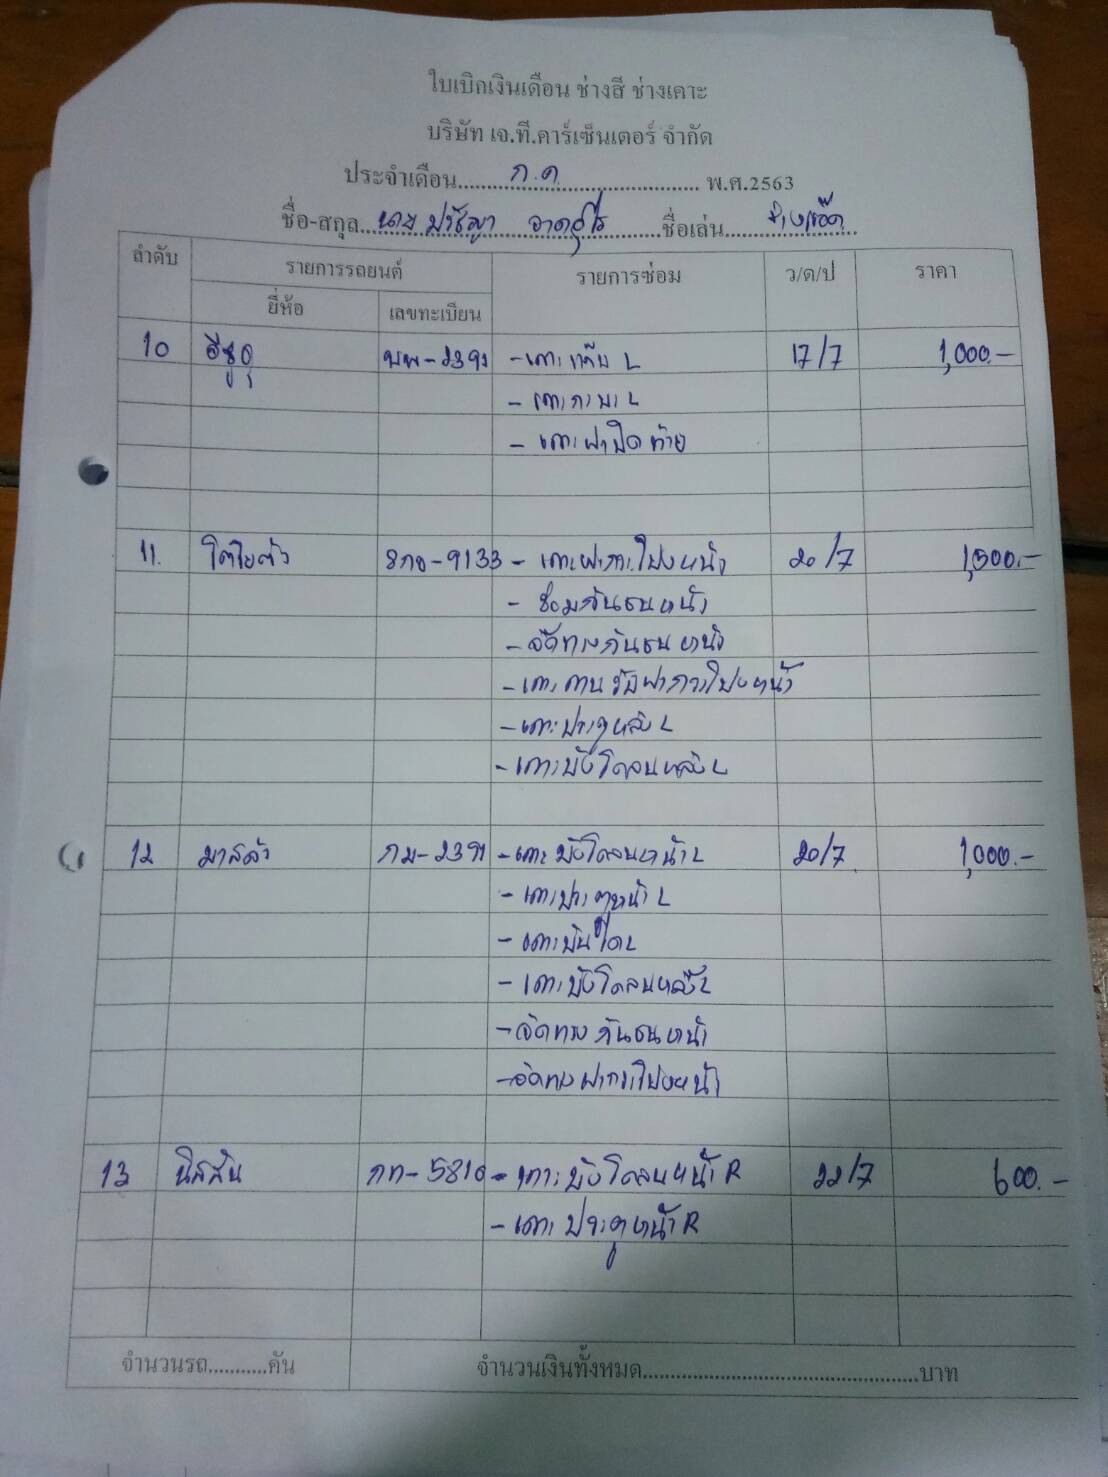 ใบเบิกเงินเดือน ช่างสี ช่างเคาะ
บริษัท เจ.ที.คาร์เซ็นเตอร์ จำกัด
ประจำเดือน......ก.ค.......พ.ศ.2563
ชื่อ-สกุล...นาย ปรัชญา.......ชื่อเล่น.......
ลำดับ รายการรถยนต์ รายการซ่อม ว/ด/ป ราคา
ยี่ห้อ เลขทะเบียน
10 อีซูซุ -2391 - เคาะแค๊บ L 17/7 1,000.-
- เคาะกะบะ L
- เคาะฝาปิดท้าย
11. โตโยต้า 8กอ-9133 - เคาะฝากระโปรงหน้า 20/7 1,500.-
- ซ่อมกันชนหน้า
- จัดทรงกันชนหน้า
- เคาะคานรับฝากระโปรงหน้า
- เคาะประตูหลัง L
- เคาะบังโคลนหลัง L
12 มาสด้า กม-2391 - เคาะบังโคลนหน้า L 20/7 1,000.-
- เคาะประตูหน้า L
- เคาะบันได L
- เคาะบังโคลนหลัง L
- จัดทรงกันชนหน้า
- จัดทรงฝากระโปรงหน้า
13 นิสสัน กท-5810 - เคาะบังโคลนหน้า R 22/7 600.-
- เคาะประตูหน้า R
จำนวนรถ...........คัน จำนวนเงินทั้งหมด................................................บาท